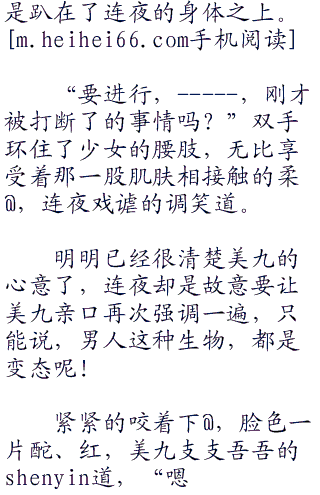 是趴在了连夜的身体之上。
[m.heihei66.com手机阅读]
“要进行，-----，刚才
被打断了的事情吗？”双手
环住了少女的腰肢，无比享
受着那一股肌肤相接触的柔
@，连夜戏谑的调笑道。
明明已经很清楚美九的
心意了，连夜却是故意要让
美九亲口再次强调一遍，只
能说，男人这种生物，都是
变态呢!
紧紧的咬着下@，脸色一
片酡、红，美九支支吾吾的
shenyin道，“嗯